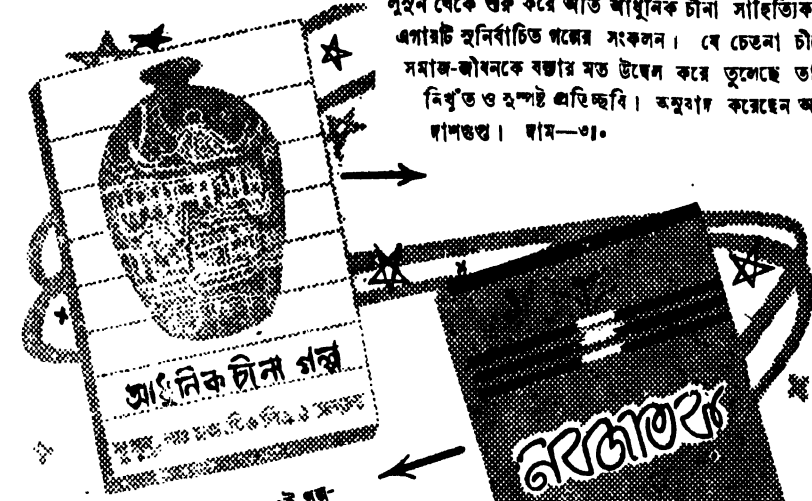 লুসুন থেকে শুরু করে অতি আধুনিক চীনা সাহিত্যিক
এগারটি সুনির্বাচিত গল্পের সংকলন। যে চেতনা চী
সমাজ-জীবনকে বন্যার মত উদ্বেল করে তুলেছে তা
নিখুঁত ও সুস্পষ্ট প্রতিচ্ছবি। অনুবাদ করেছেন অ
দাশগুপ্ত। দাম—৩৷৹
আধুনিক চীনা গল্প
নবজাতক